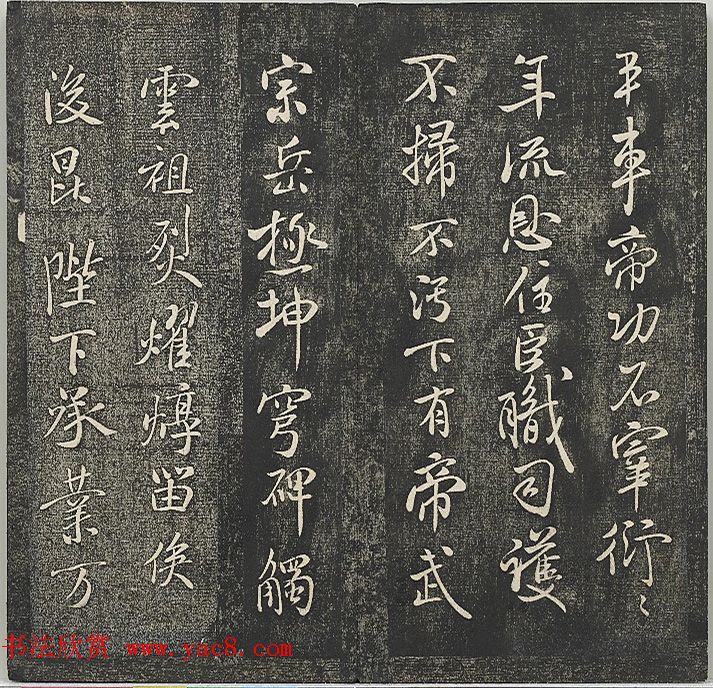 車帝功石宰衍〻
年流恩住臣職司護
不掃不污下有帝武
宗岳極坤穹碑觸
雲祖烈耀焞留俟
後昆陛下承業万
书法欣赏 www.yac8.com